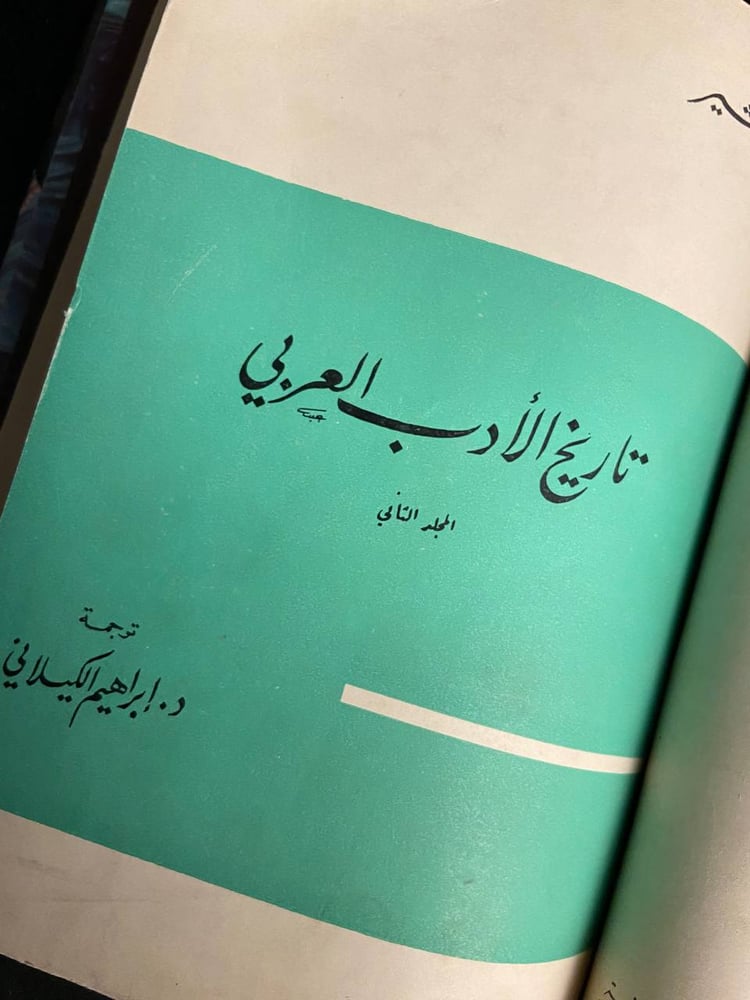 تاريخ الأدب العربي
المجلد الثاني
ترجمة
د. إبراهيم الكيلاني